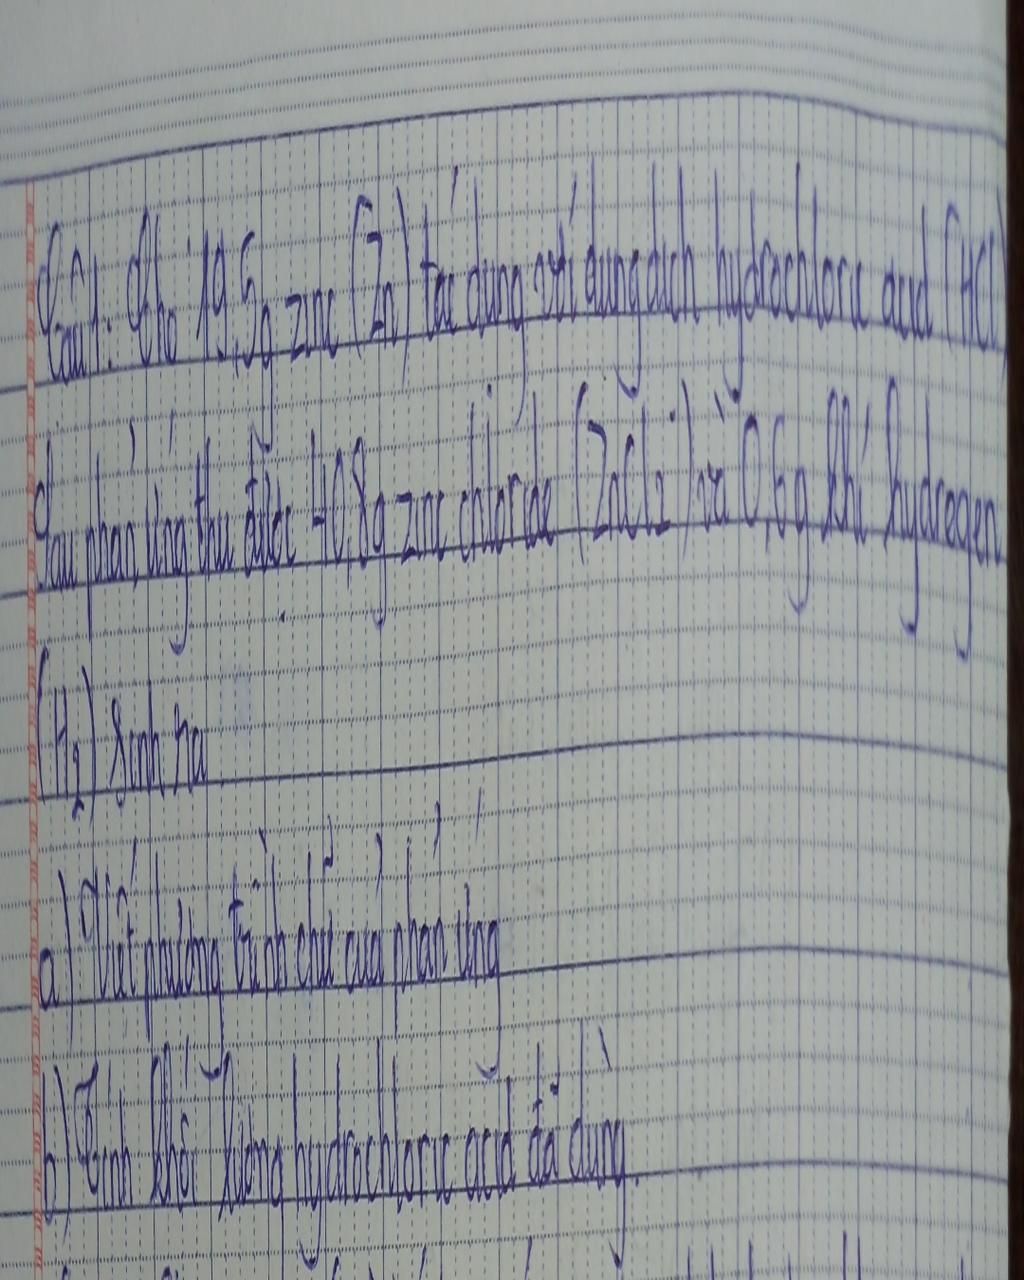 Câu 1: Cho 19,5g zinc (Zn) tác dụng với dung dịch hydrochloric acid (HCl)
Sau phản ứng thu được 40,8g zinc chloride (ZnCl2) và 0,6g khí hydrogen
(H2) sinh ra
a) Viết phương trình chữ của phản ứng
b) Tính khối lượng hydrochloric acid đã dùng.